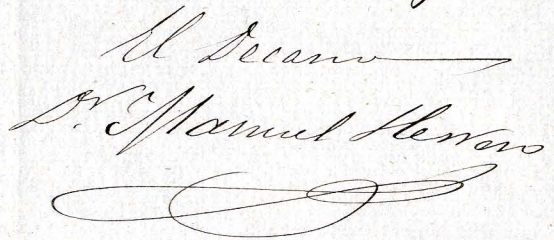 El Decano
Dr. Manuel Herrero